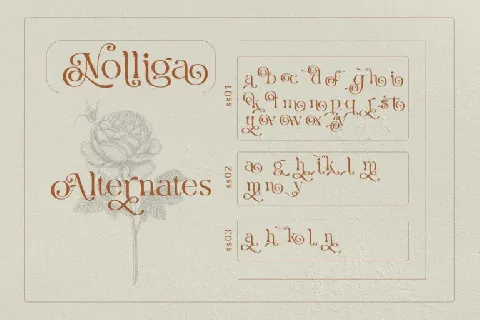 Nolliga
Alternates
ss01
a b c d e f g h i
k l m n o p q r s t
u v w x y z
ss02
a g h i k l m
m n o y
ss03
a h k l n